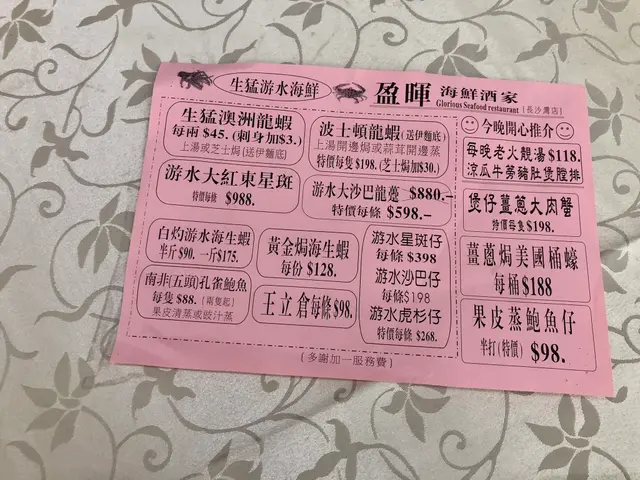 生猛游水海鮮
盈暉 海鮮酒家
Glorious Seafood restaurant [長沙灣店]
生猛澳洲龍蝦
每兩 $45. (刺身加$3.)
上湯或芝士焗 (送伊麵底)
波士頓龍蝦 (送伊麵底)
上湯開邊焗或蒜茸開邊蒸
特價每隻 $198. (芝士焗加$30.)
游水大紅東星斑
特價每條 $988.
游水大沙巴龍躉 $880.-
特價每條 $598.-
白灼游水海生蝦
半斤 $90. 一斤 $175.
黃金焗海生蝦
每份 $128.
南非(五頭)孔雀鮑魚
每隻 $88. (兩隻起)
果皮清蒸或豉汁蒸
王立倉每條 $98.
游水星斑仔
每條 $398
游水沙巴仔
每條$198
游水虎杉仔
特價每條 $268.
今晚開心推介
每晚老火靚湯 $118.
涼瓜牛蒡豬肚煲膛排
煲仔薑蔥大肉蟹
特價每隻 $198.
薑蔥焗美國桶蠔
每桶 $188
果皮蒸鮑魚仔
半打(特價) $98.
[多謝加一服務費]